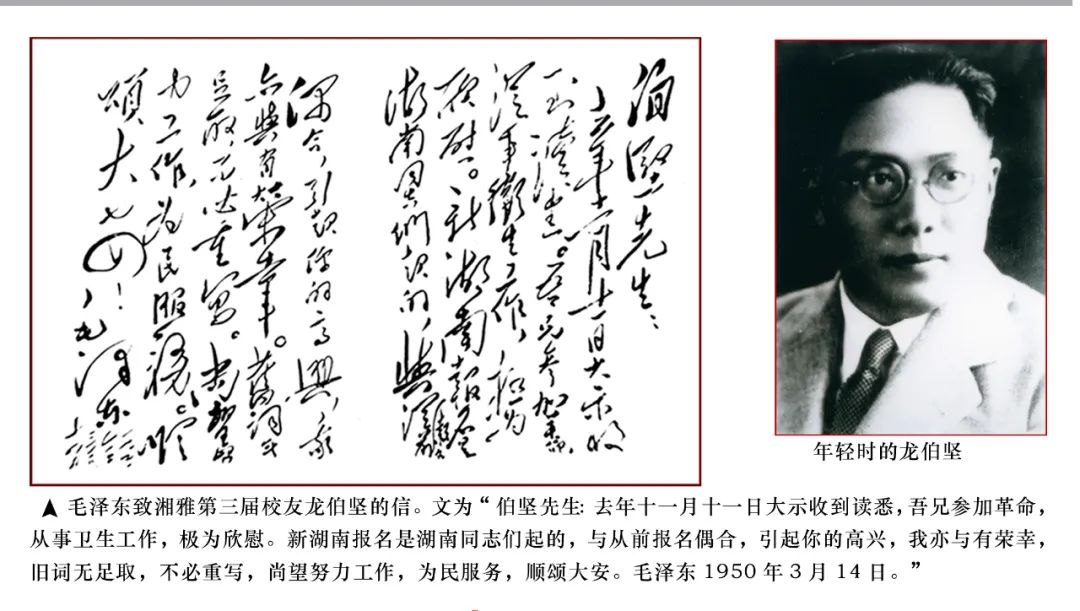 伯堅先生:
去年十一月十一日大示收
到讀悉。吾兄参加革命,
從事衛生工作,極为
欣慰。新湖南報名是
湖南同志們起的,與
偶合,引起你的高興,我
亦與有榮幸。舊詞无
足取,不必重寫。尚望努
力工作,为民服務。順
頌大安!毛澤东
三月十四日
年轻时的龙伯坚
▲ 毛泽东致湘雅第三届校友龙伯坚的信。文为“ 伯坚先生: 去年十一月十一日大示收到读悉,吾兄参加革命,
从事卫生工作,极为欣慰。新湖南报名是湖南同志们起的,与从前报名偶合,引起你的高兴,我亦与有荣幸,
旧词无足取,不必重写,尚望努力工作,为民服务,顺颂大安。毛泽东 1950 年 3 月 14 日。”